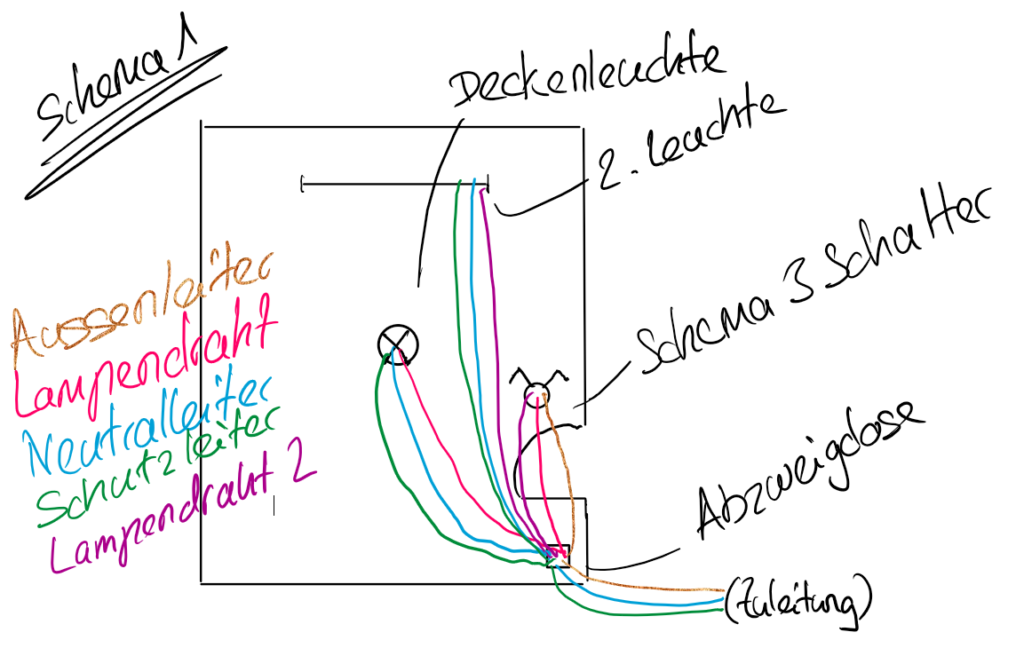 Schema 1
Deckenleuchte
2. Leuchte
Schema 3 Schalter
Aussenleiter
Lampendraht
Neutralleiter
Schutzleiter
Lampendraht 2
Abzweigdose
(Zuleitung)